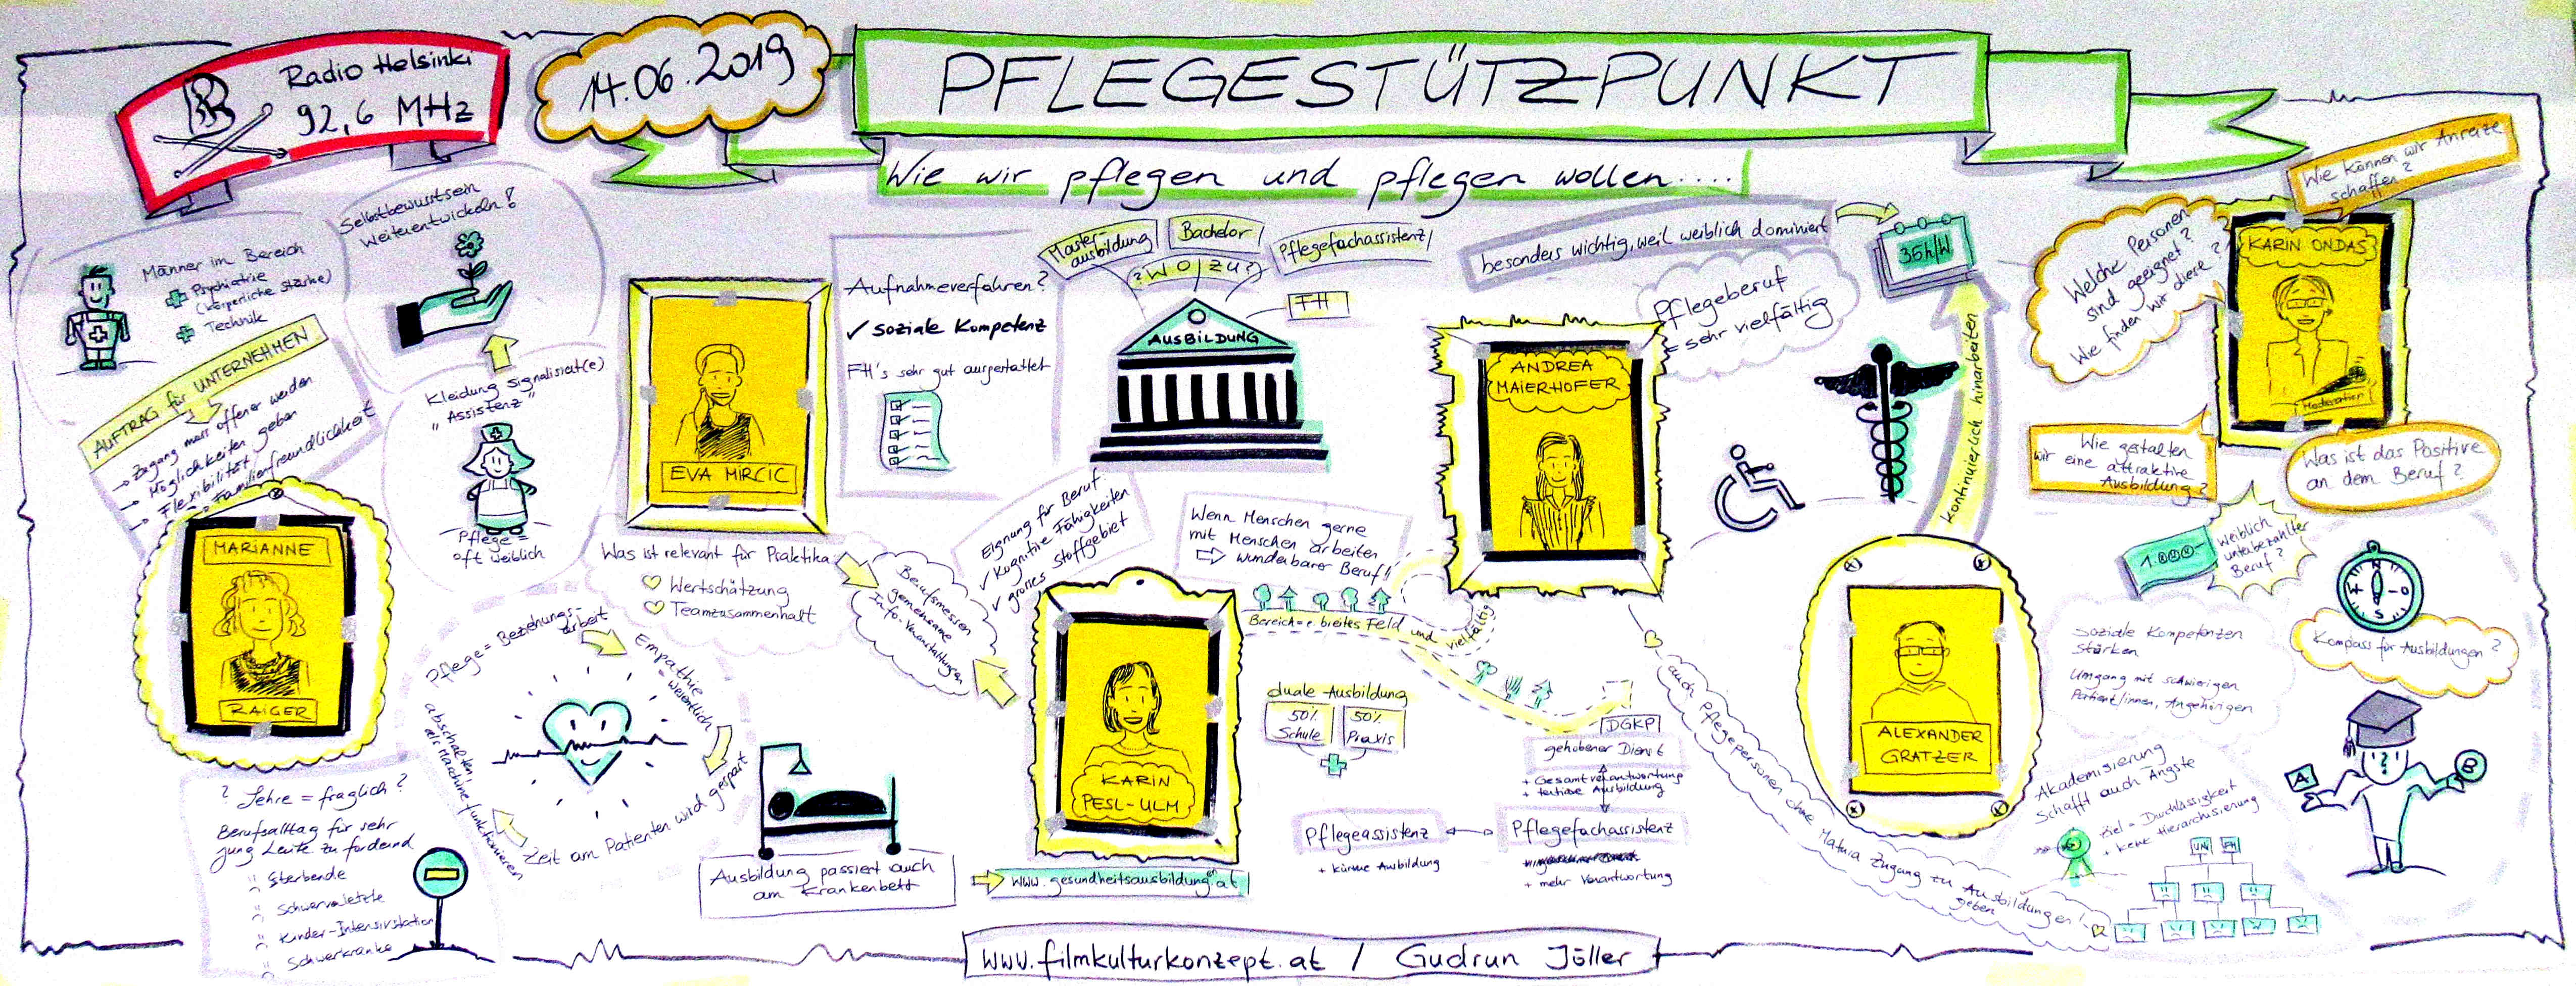 Radio Helsinki
92,6 MHz
14.06.2019
PFLEGESTÜTZPUNKT
Wie wir pflegen und pflegen wollen....
Männer im Bereich
Psychiatrie
(körperliche Stärke)
Technik
Selbstbewusstsein
weiterentwickeln!
AUFTRAG für UNTERNEHMEN
→ Zugang muss offener werden
→ Möglichkeiten geben
→ Flexibilität
→ Familienfreundlichkeit
Kleidung signalisiert(e)
"Assistenz"
Pflege =
oft weiblich
MARIANNE
RAIGER
? Lehre = fraglich?
Berufsalltag für sehr
jung Leute zu fordernd
Sterbende
Schwerverletzte
Kinder-Intensivstation
Schwerkranke
EVA MIRCIC
Was ist relevant für Praktika:
Wertschätzung
Teamzusammenhalt
Pflege = Beziehungs-
arbeit
Empathie
= wesentlich
Zeit am Patienten wird gespart
abschalten,
als Maschine funktionieren
Aufnahmeverfahren?
✓ soziale Kompetenz
FH's sehr gut ausgestattet
Master-
ausbildung
Bachelor
Pflegefachassistenz
? WOZU ?
FH
AUSBILDUNG
Eignung für Beruf:
✓ Kognitive Fähigkeiten
✓ großes Stoffgebiet
Berufsmessen
gemeinsame
Info-Veranstaltungen
Wenn Menschen gerne
mit Menschen arbeiten
⇨ wunderbarer Beruf!
Bereich = e. breites Feld und vielfältig
KARIN
PESL-ULM
Ausbildung passiert auch
am Krankenbett
www.gesundheitsausbildungen.at
duale Ausbildung
50% Schule
50% Praxis
DGKP
gehobener Dienst
+ Gesamtverantwortung
+ tertiäre Ausbildung
Pflegeassistenz
+ kürzere Ausbildung
Pflegefachassistenz
+ mehr Verantwortung
besonders wichtig, weil weiblich dominiert
35h/W
ANDREA
MAIERHOFER
Pflegeberuf
= sehr vielfältig
kontinuierlich hinarbeiten
auch Pflegepersonen ohne Matura Zugang zu Ausbildungen!
geben
ALEXANDER
GRATZER
Wie können wir Anreize
schaffen?
Welche Personen
sind geeignet?
Wie finden wir diese?
KARIN ONDAS
Moderation
Wie gestalten
wir eine attraktive
Ausbildung?
Was ist das Positive
an dem Beruf?
1.000-
weiblich
unterbezahlter
Beruf?
N
W
O
S
Kompass für Ausbildungen?
soziale Kompetenzen
stärken
Umgang mit schwierigen
Patient/innen, Angehörigen
Akademisierung
schafft auch Ängste
Ziel = Durchlässigkeit
+ keine Hierarchisierung
UNI
FH
A
?
B
www.filmkulturkonzept.at / Gudrun Jöller